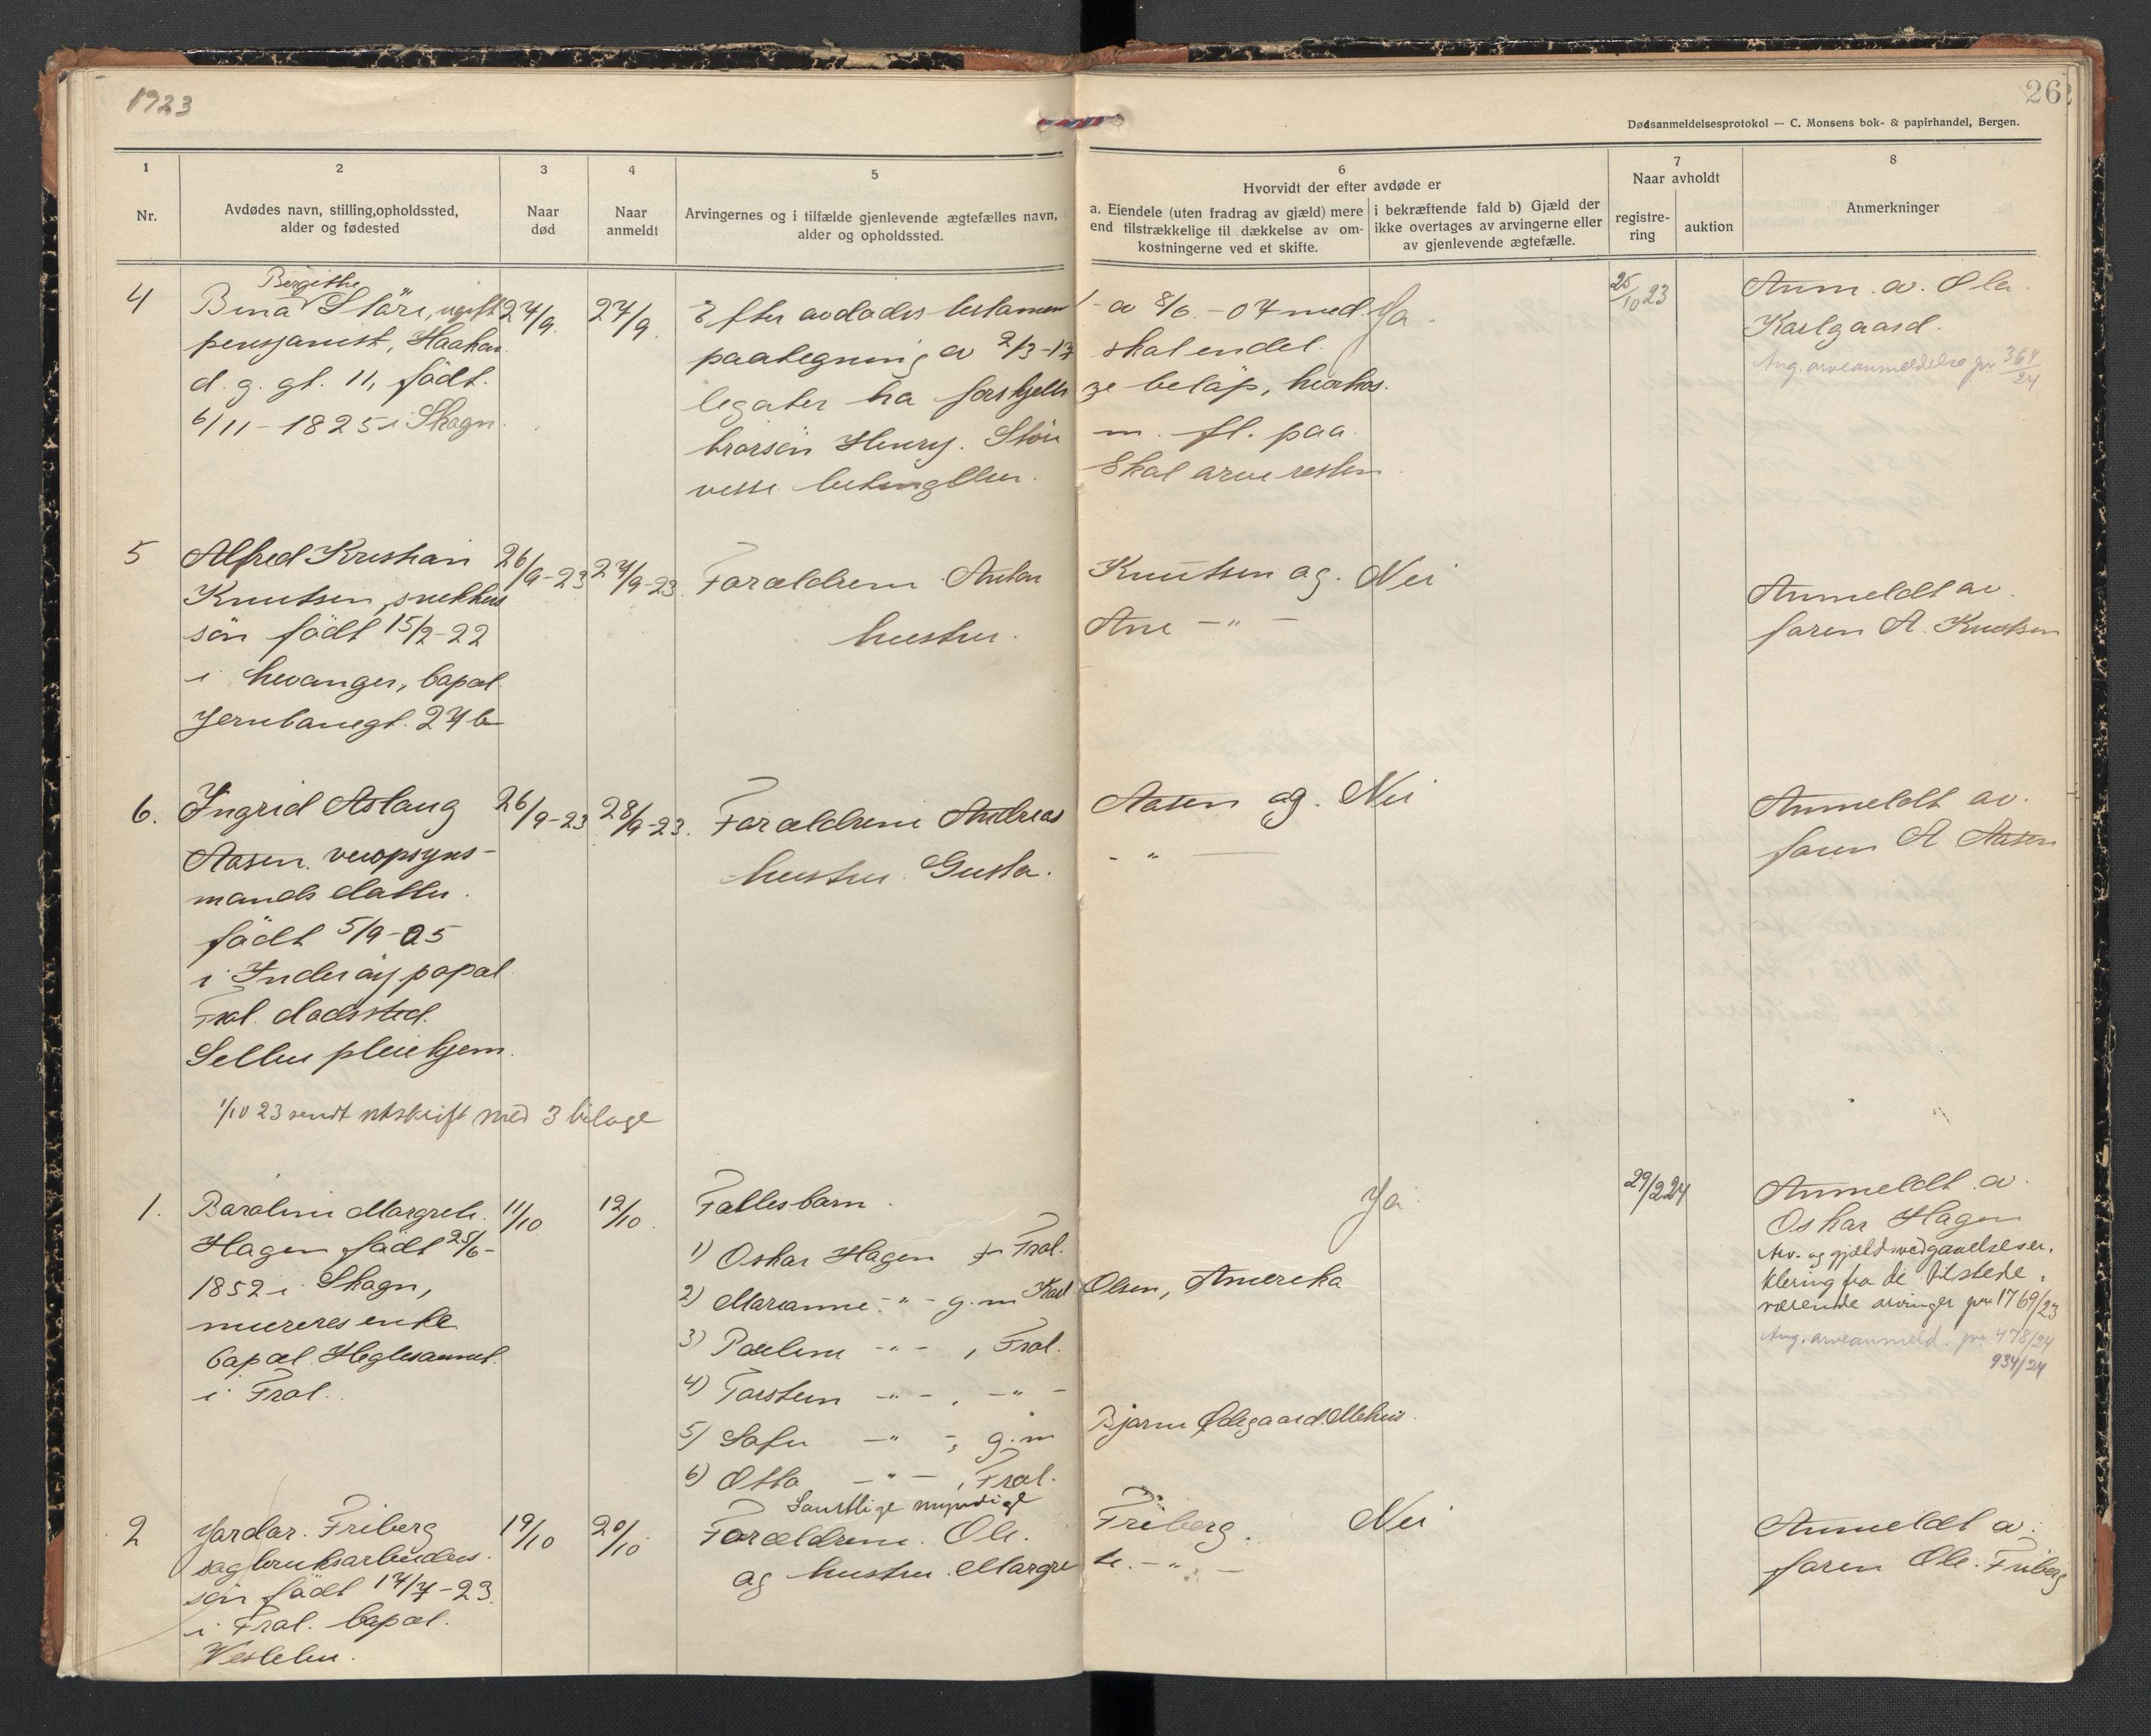 1923
26
Dødsanmeldelsesprotokol — C. Monsens bok- & papirhandel, Bergen.
1
Nr.
2
Avdødes navn, stilling, opholdssted,
alder og fødested
3
Naar
død
4
Naar
anmeldt
5
Arvingernes og i tilfælde gjenlevende ægtefælles navn,
alder og opholdssted.
6
Hvorvidt der efter avdøde er
a. Eiendele (uten fradrag av gjæld) mere
end tilstrækkelige til dækkelse av om-
kostningerne ved et skifte.
i bekræftende fald b) Gjæld der
ikke overtages av arvingerne eller
av gjenlevende ægtefælle.
7
Naar avholdt
registre-
ring
auktion
8
Anmerkninger
4
Bergithe
Bina Störe, ugift
pensjonist, Haakon
d. g. gt. 11, födt
6/11 - 1825 i Skogn.
27/9.
27/9.
Efter avdødes testamen
paategning av 2/3-13
legater ha forskjelli
brorsön Henry. Störe
visse betingelser.
t av 8/6. - 07 med
skal endel
ge belöp, hvorhos.
m. fl. paa
Skal arve resten
Ja.
25/10 23
Anm. av. Ola
Karlgaard.
Ang. arveanmeldelse jnr 364/24
5
Alfred Kristian
Knutsen, snekkers
sön födt 15/2-22
i Levanger, bopæl
Jernbanegt. 27 b
26/9-23
27/9-23.
Forældrene Anton
hustru.
Knutsen og.
Ane -"-
Nei
Anmeldt av.
faren A. Knutsen
6.
Ingrid Aslaug
Aasen. veiopsyns-
mands datter.
födt 5/9-05
i Inderöy bopæl
Frol. dödssted.
Sellin pleiehjem.
26/9-23
28/9-23.
Forældrene Andreas
hustru Gusta.
Aasen og.
-"-
Nei
Anmeldt av.
faren A Aasen
1/10 23 sendt utskrift med 3 bilage
1.
Baroline Margrete.
Hagen födt 25/6-
1852 i Skogn,
mureres enke
bopæl Heglesannet.
i Frol.
11/10
12/10.
Fællesbarn.
1) Oskar Hagen Frol.
2) Marianne -"- g.m Karl
3) Paeline -"-, Frol.
4) Torstein -"-, -"-
5) Sofie -"-, g.m
6) Otto -"-, Frol.
Samtlige myndige
Olsen, Amerika
Bjarne Ødegaard. Mehus.
Ja
29/2 24
Anmeldt av.
Oskar Hagen
Arv- og gjældsvedgaaelseser.
klæring fra de tilstede.
værende arvinger jnr 1769/23
Ang. arveanmeld. jnr 478/24
934/24
2
Jardar. Friberg
sagbruksarbeiders.
sön födt 17/7-23.
i Frol. bopæl.
19/10
20/10
Forældrene. Ole.
og hustru. Margre
Friberg.
te. -"-
Nei
Anmeldt av.
faren Ole. Friberg